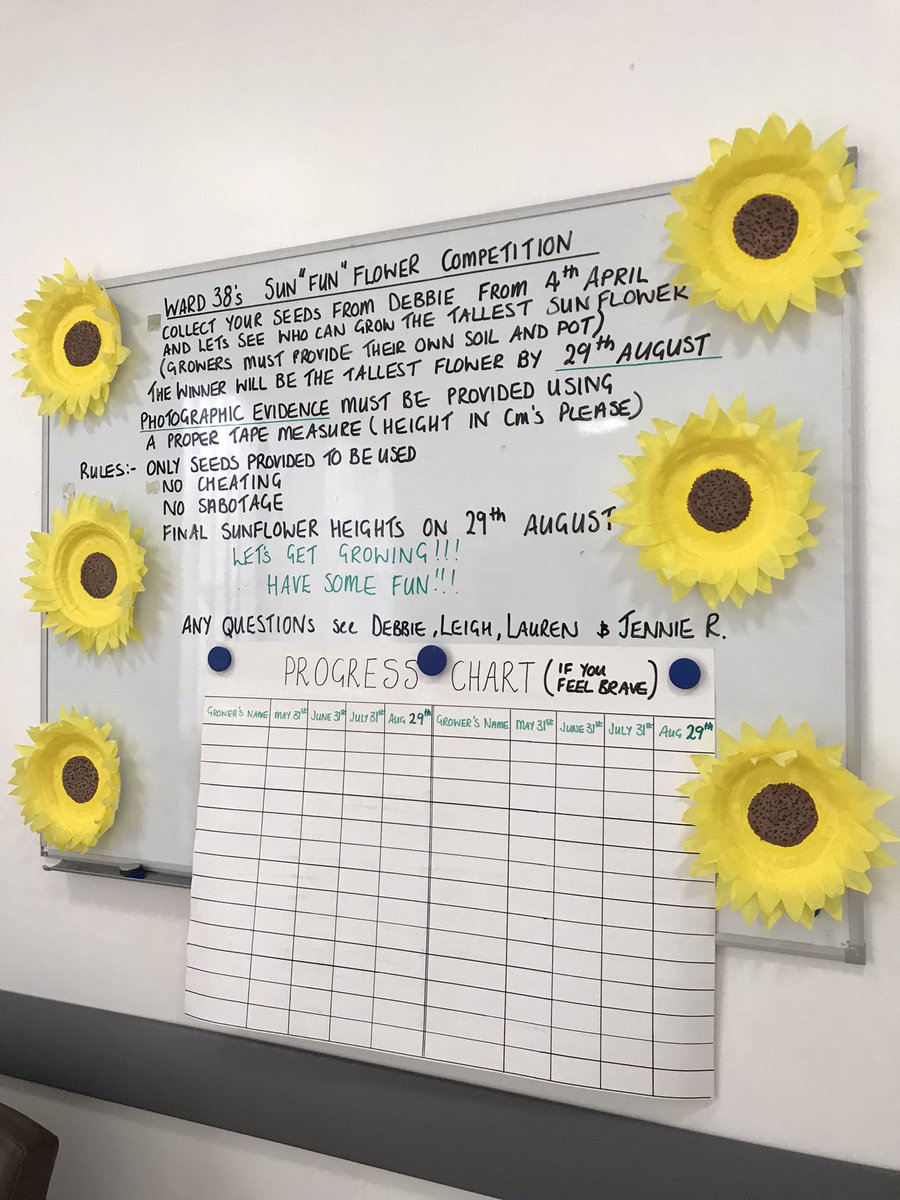 WARD 38's SUN "FUN" FLOWER COMPETITION
COLLECT YOUR SEEDS FROM DEBBIE FROM 4th APRIL
AND LETS SEE WHO CAN GROW THE TALLEST SUNFLOWER
(GROWERS MUST PROVIDE THEIR OWN SOIL AND POT)
THE WINNER WILL BE THE TALLEST FLOWER BY 29th AUGUST
PHOTOGRAPHIC EVIDENCE MUST BE PROVIDED USING
A PROPER TAPE MEASURE (HEIGHT IN Cm's PLEASE)
RULES:- ONLY SEEDS PROVIDED TO BE USED
NO CHEATING
NO SABOTAGE
FINAL SUNFLOWER HEIGHTS ON 29th AUGUST
LET'S GET GROWING!!!
HAVE SOME FUN!!!
ANY QUESTIONS see DEBBIE, LEIGH, LAUREN & JENNIE R.
PROGRESS CHART (IF YOU
FEEL BRAVE)
GROWER'S NAME MAY 31st JUNE 31st JULY 31st AUG 29th GROWER'S NAME MAY 31st JUNE 31st JULY 31st AUG 29th